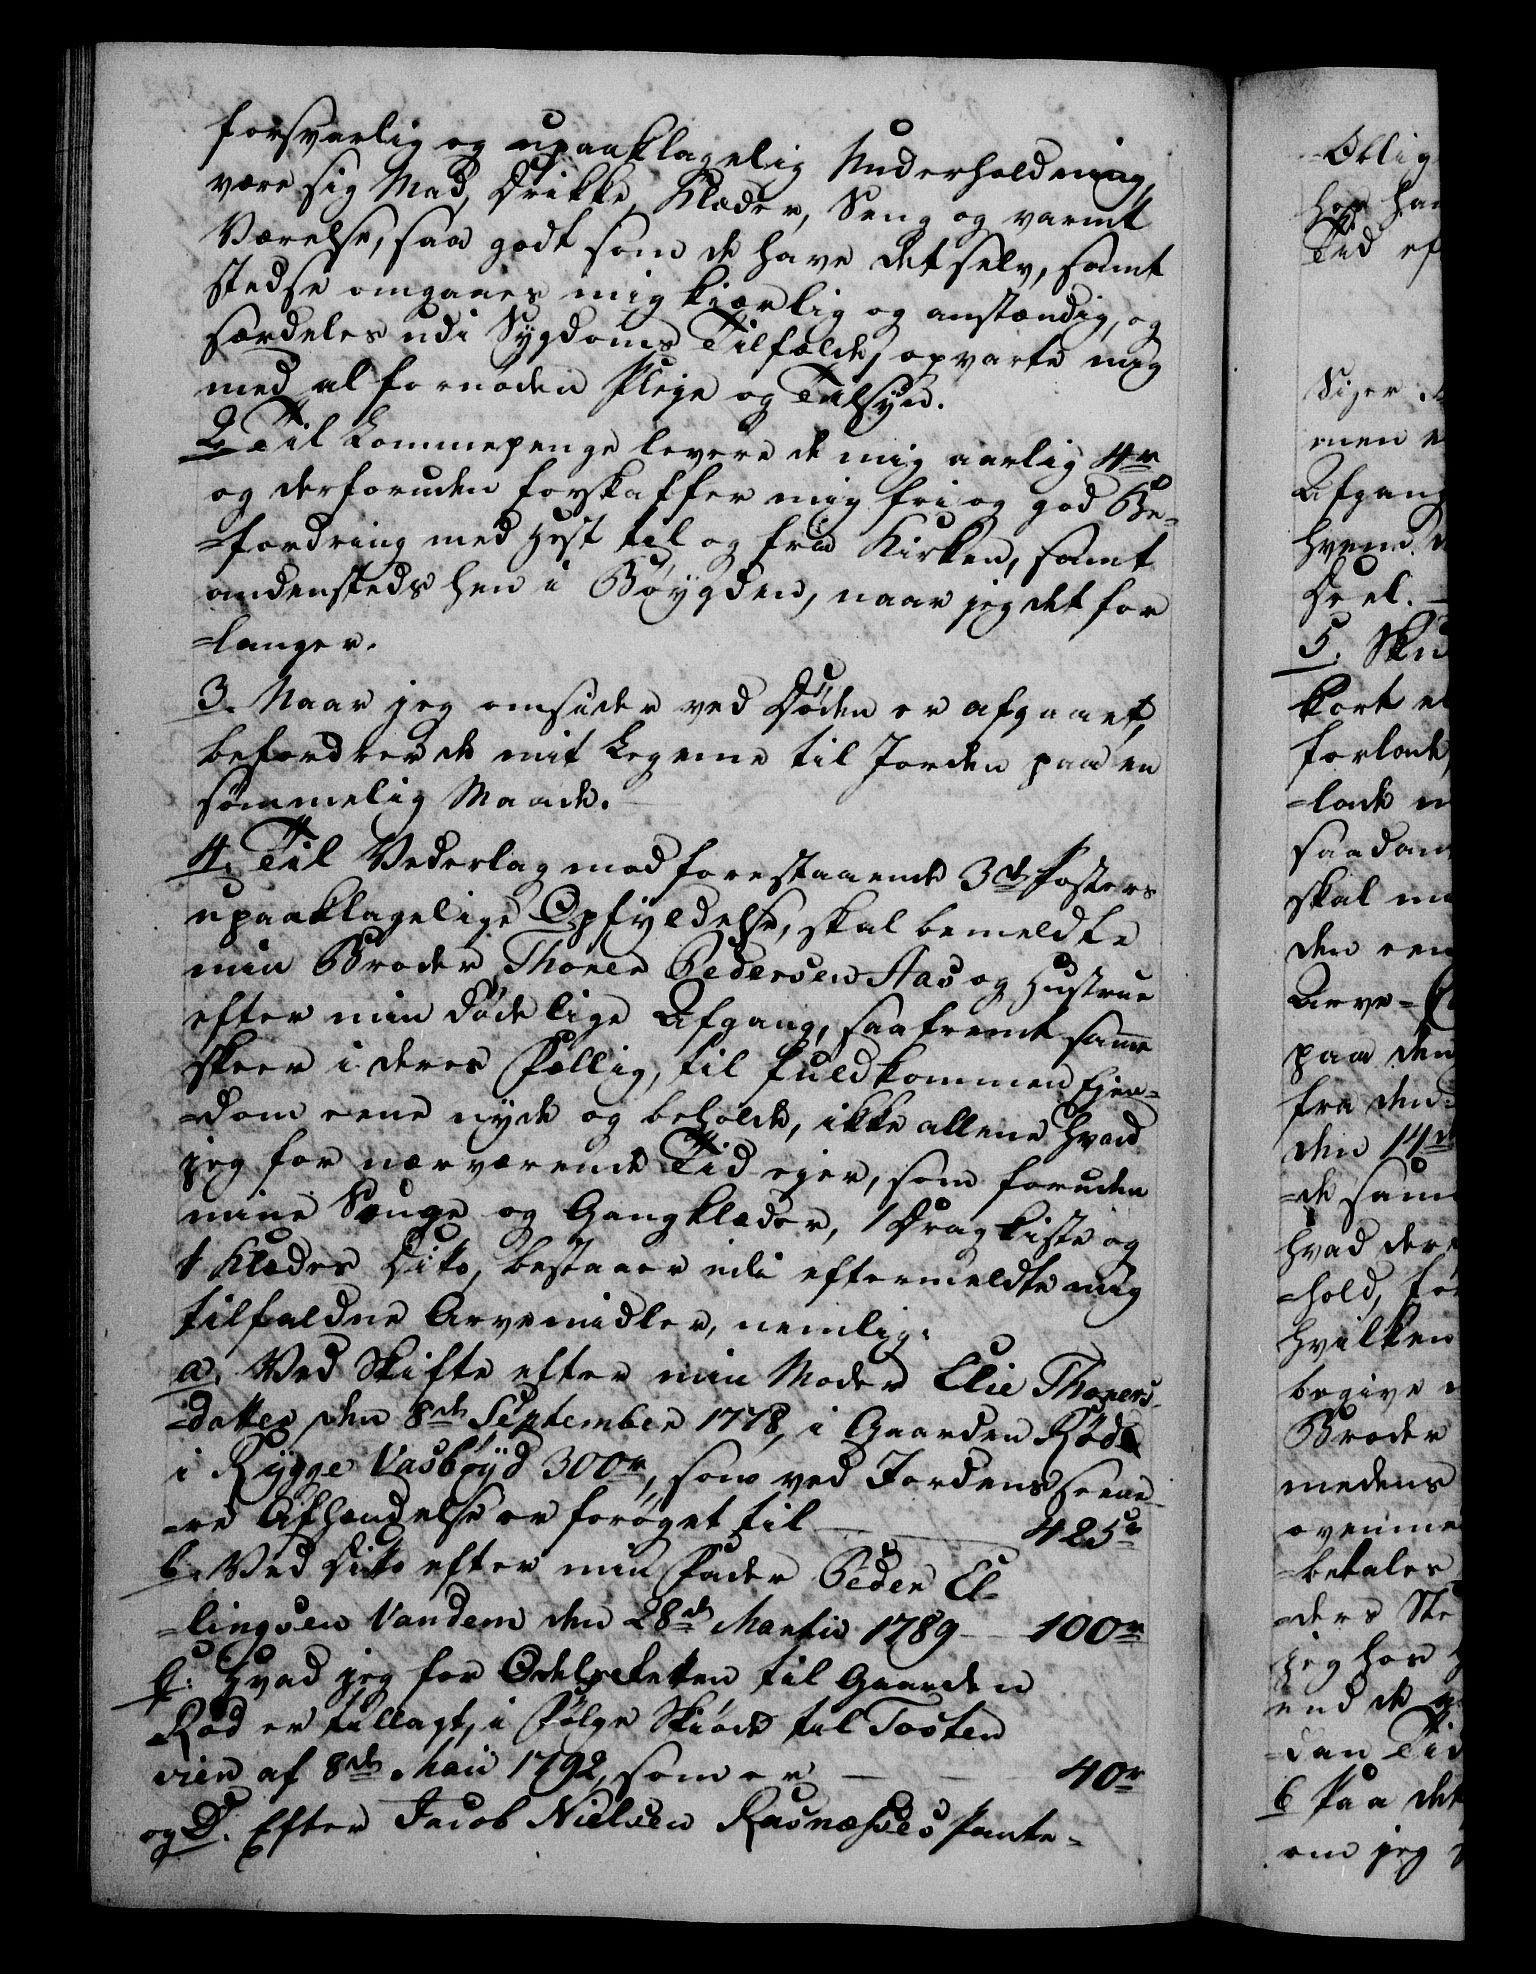 forsvarlig og upaaklagelig Underholdning,
være sig Mad, Drikke, Klæder, Seng og varmt
Værelse, saa godt som de have det selv, samt
stedse omgaaes mig kierlig og anstændig, og
særdeles udi Sygdoms Tilfælde, opvarte mig
med al fornøden Pleje og Tilsyn.
2. Til Lommepenge levere de mig aarlig 4r
og derforuden forskaffer mig fri og god Be-
=fordring med Hest til og fra Kirken, samt
andensteds hen i Bøygden, naar jeg det for
=langer.
3. Naar jeg omsider ved Døden er afgaaet,
befordrer de mit Legeme til Jorden paa en
sømmelig Maade.
4. Til Vederlag mod forestaaende 3de Posters
upaaklagelige Opfyldelse, skal bemeldte
min Broder Thorer Pedersen Aas og Hustrue
efter min dødelige Afgang, saafremt samme
skeer i deres Fællig, til fuldkommen Ejen-
=dom eene nyde og beholde, ikke allene hvad
jeg for nærværende Tid ejer, som foruden
mine Senge og Gangklæder, 1 Dragkiste og
1 Klæder Dito, bestaaer udi eftermeldte mig
tilfaldne Arvemidler, nemlig:
a. Ved Skifte efter min Moder Elie Thorers
=datter den 8de September 1778, i Gaarden Röd
i Rygge Vasbøyd 300r, som ved Jordens seene-
=re Afhændelse er forøget til — 425r
b. Ved Dito efter min Fader Peder El-
=lingsen Vandem den 28de Martii 1789 — 100r
c. Hvad jeg for Odelsretten til Gaarden
Röd er tillagt, i Følge Skiøde til Tosten
af 8de Maii 1792, som er — 40r
og D. Efter Jacob Nielsen Pante-
Oblig
Tid ef
Siger
men
Afgang
hvem
Deel.
5. Sku
kort
forlade,
=lade
saadan
skal
den
Arve-
paa den
fra den
den 14de
=de sam
hvad der
=hold, for
hvilken
begive
Broder
medens
ovenme
=betales
=ders
jeg hos
end de
=dan Tid
6 Paa det
om jeg